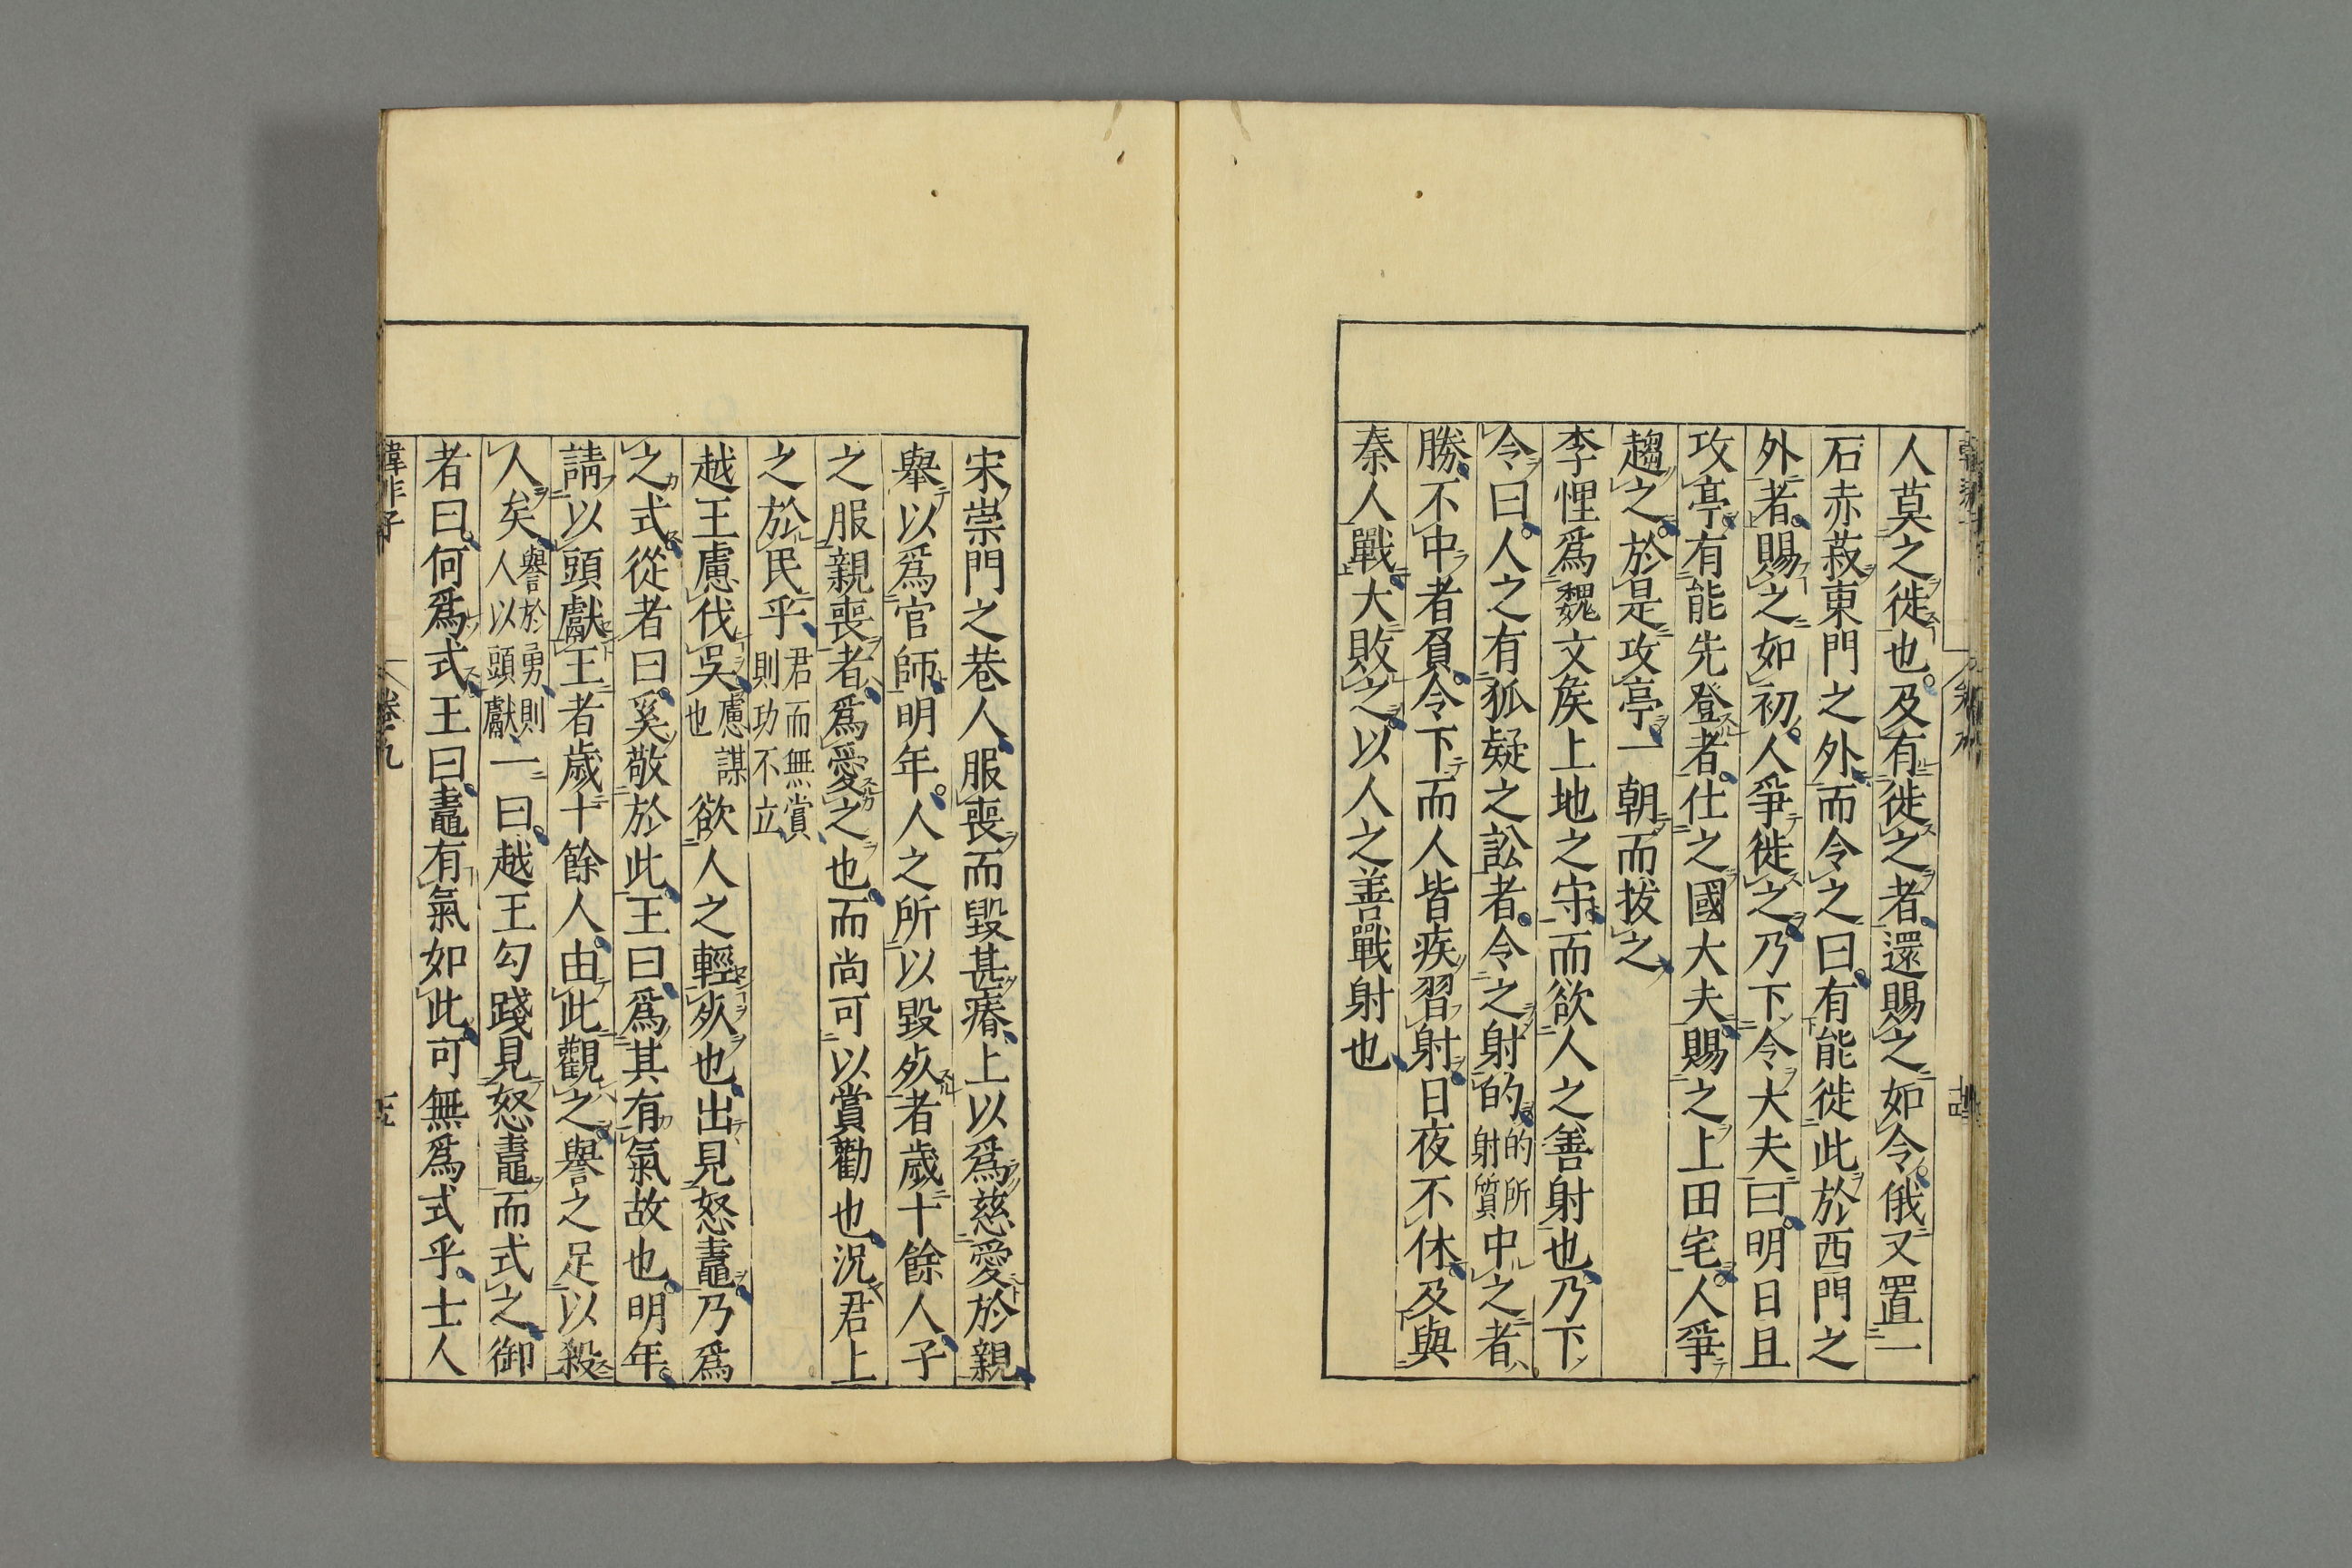 人莫之徙也及有徙之者還賜之如令俄又置一
石赤菽東門之外而令之曰有能徙此於西門之
外者賜之如初人爭徙之乃下令大夫曰明日且
攻亭有能先登者仕之國大夫賜之上田宅人爭
趨之於是攻亭一朝而拔之
李悝爲魏文矦上地之守而欲人之善射也乃下
令曰人之有狐疑之訟者令之射的的所射質中之者
勝不中者負令下而人皆疾習射日夜不休及與
秦人戰大敗之以人之善戰射也
宋崇門之巷人服喪而毀甚瘠上以爲慈愛於親
舉以爲官師明年人之所以毀死者歲十餘人子
之服親喪者爲愛之也而尚可以賞勸也況君上
之於民乎君而無賞則功不立
越王慮伐吳慮謀也欲人之輕死也出見怒鼃乃爲
之式從者曰奚敬於此王曰爲其有氣故也明年
請以頭獻王者歲十餘人由此觀之譽之足以殺
人矣譽於勇則人以頭獻一曰越王勾踐見怒鼃而式之御
者曰何爲式王曰鼃有氣如此可無爲式乎士人
韓非子 卷九